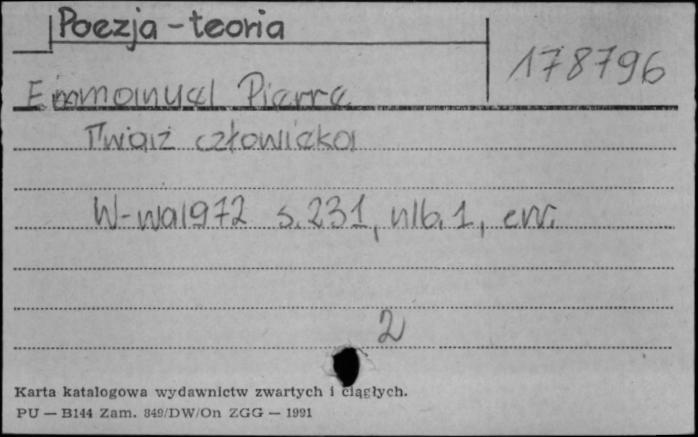 Poezja - teoria
178796
Emmanuel Pierre
Twarz człowieka
W-wa 1972 s. 231, nlb. 1, err.
2
Karta katalogowa wydawnictw zwartych i ciągłych.
PU — B144 Zam. 849/DW/On ZGG — 1991